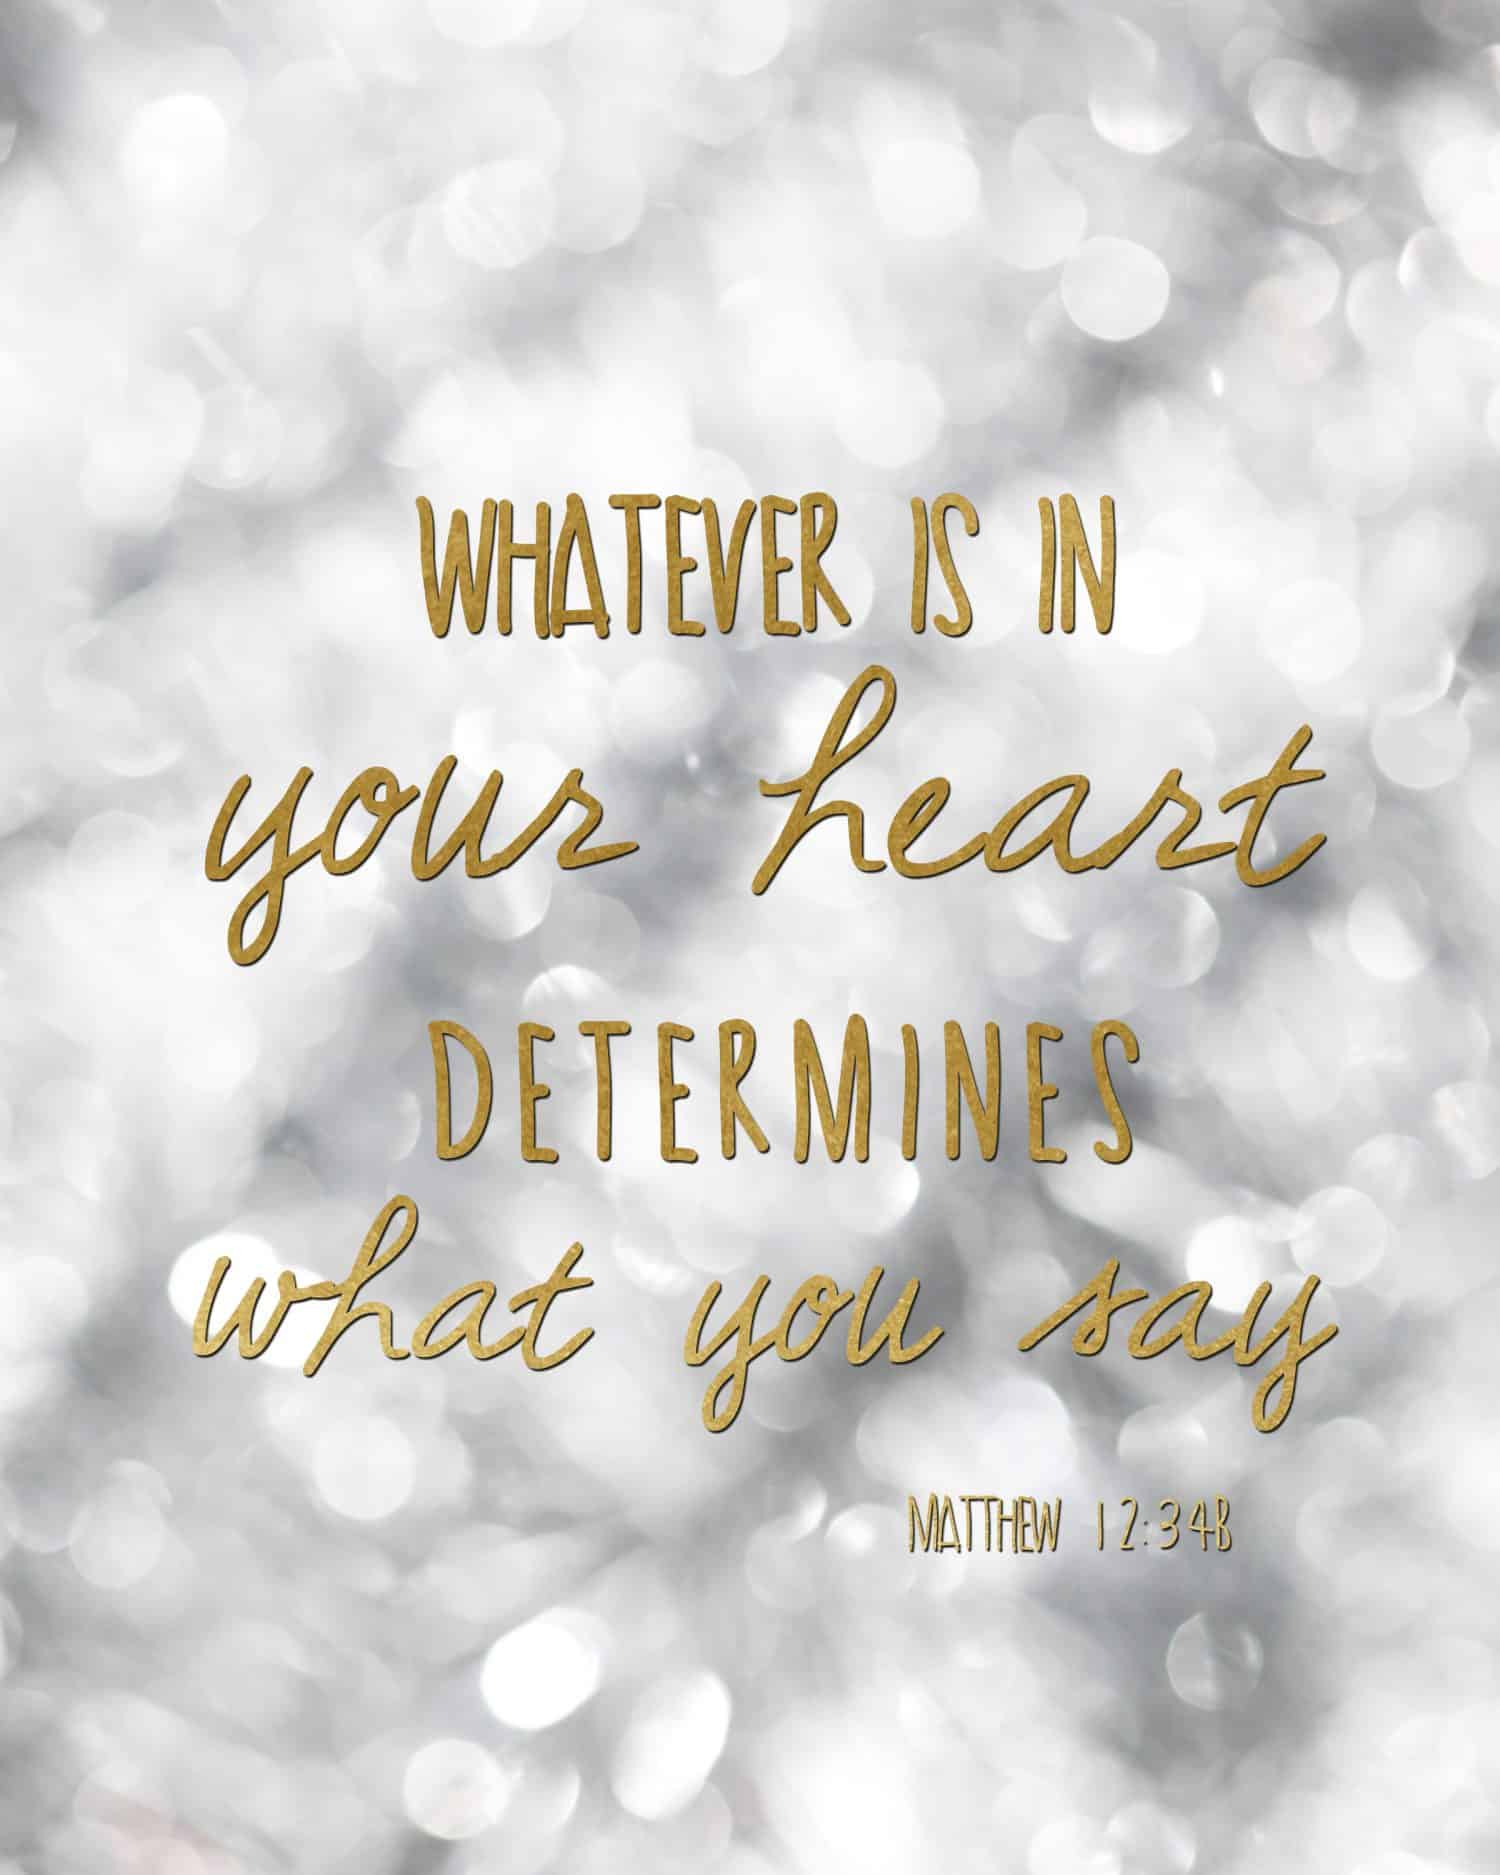 WHATEVER IS IN
your heart
DETERMINES
what you say
MATTHEW 12:34B